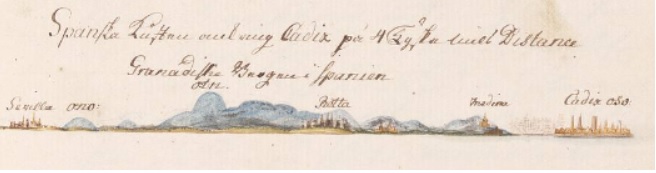 Spanska Kusten omkring Cadix på 4 Tyska miels Distance
Granadiske Bergen i Spanien
otn.
Sevilla ono: Rotta Medina Cadix oso: